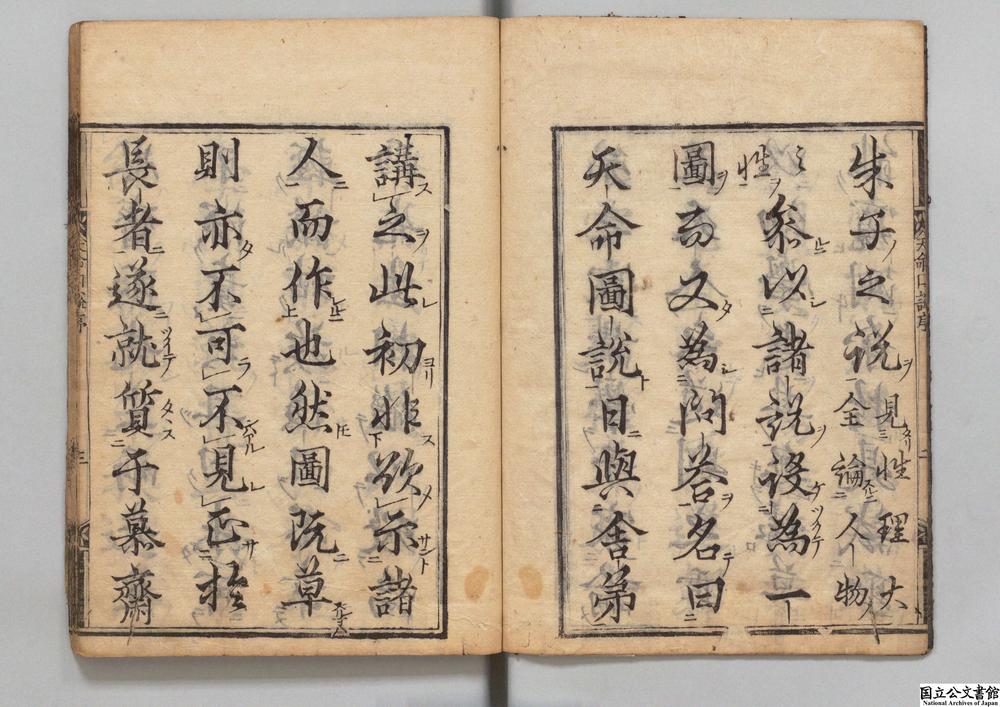 朱子之説見性理大全論人物
之性叅以諸説設為一
圖而又為問答名曰
天命圖説日與舎弟
講之此初非欲示諸
人而作也然圖既草
則亦不可不見正於
長者遂就質于慕齋
国立公文書館
National Archives of Japan